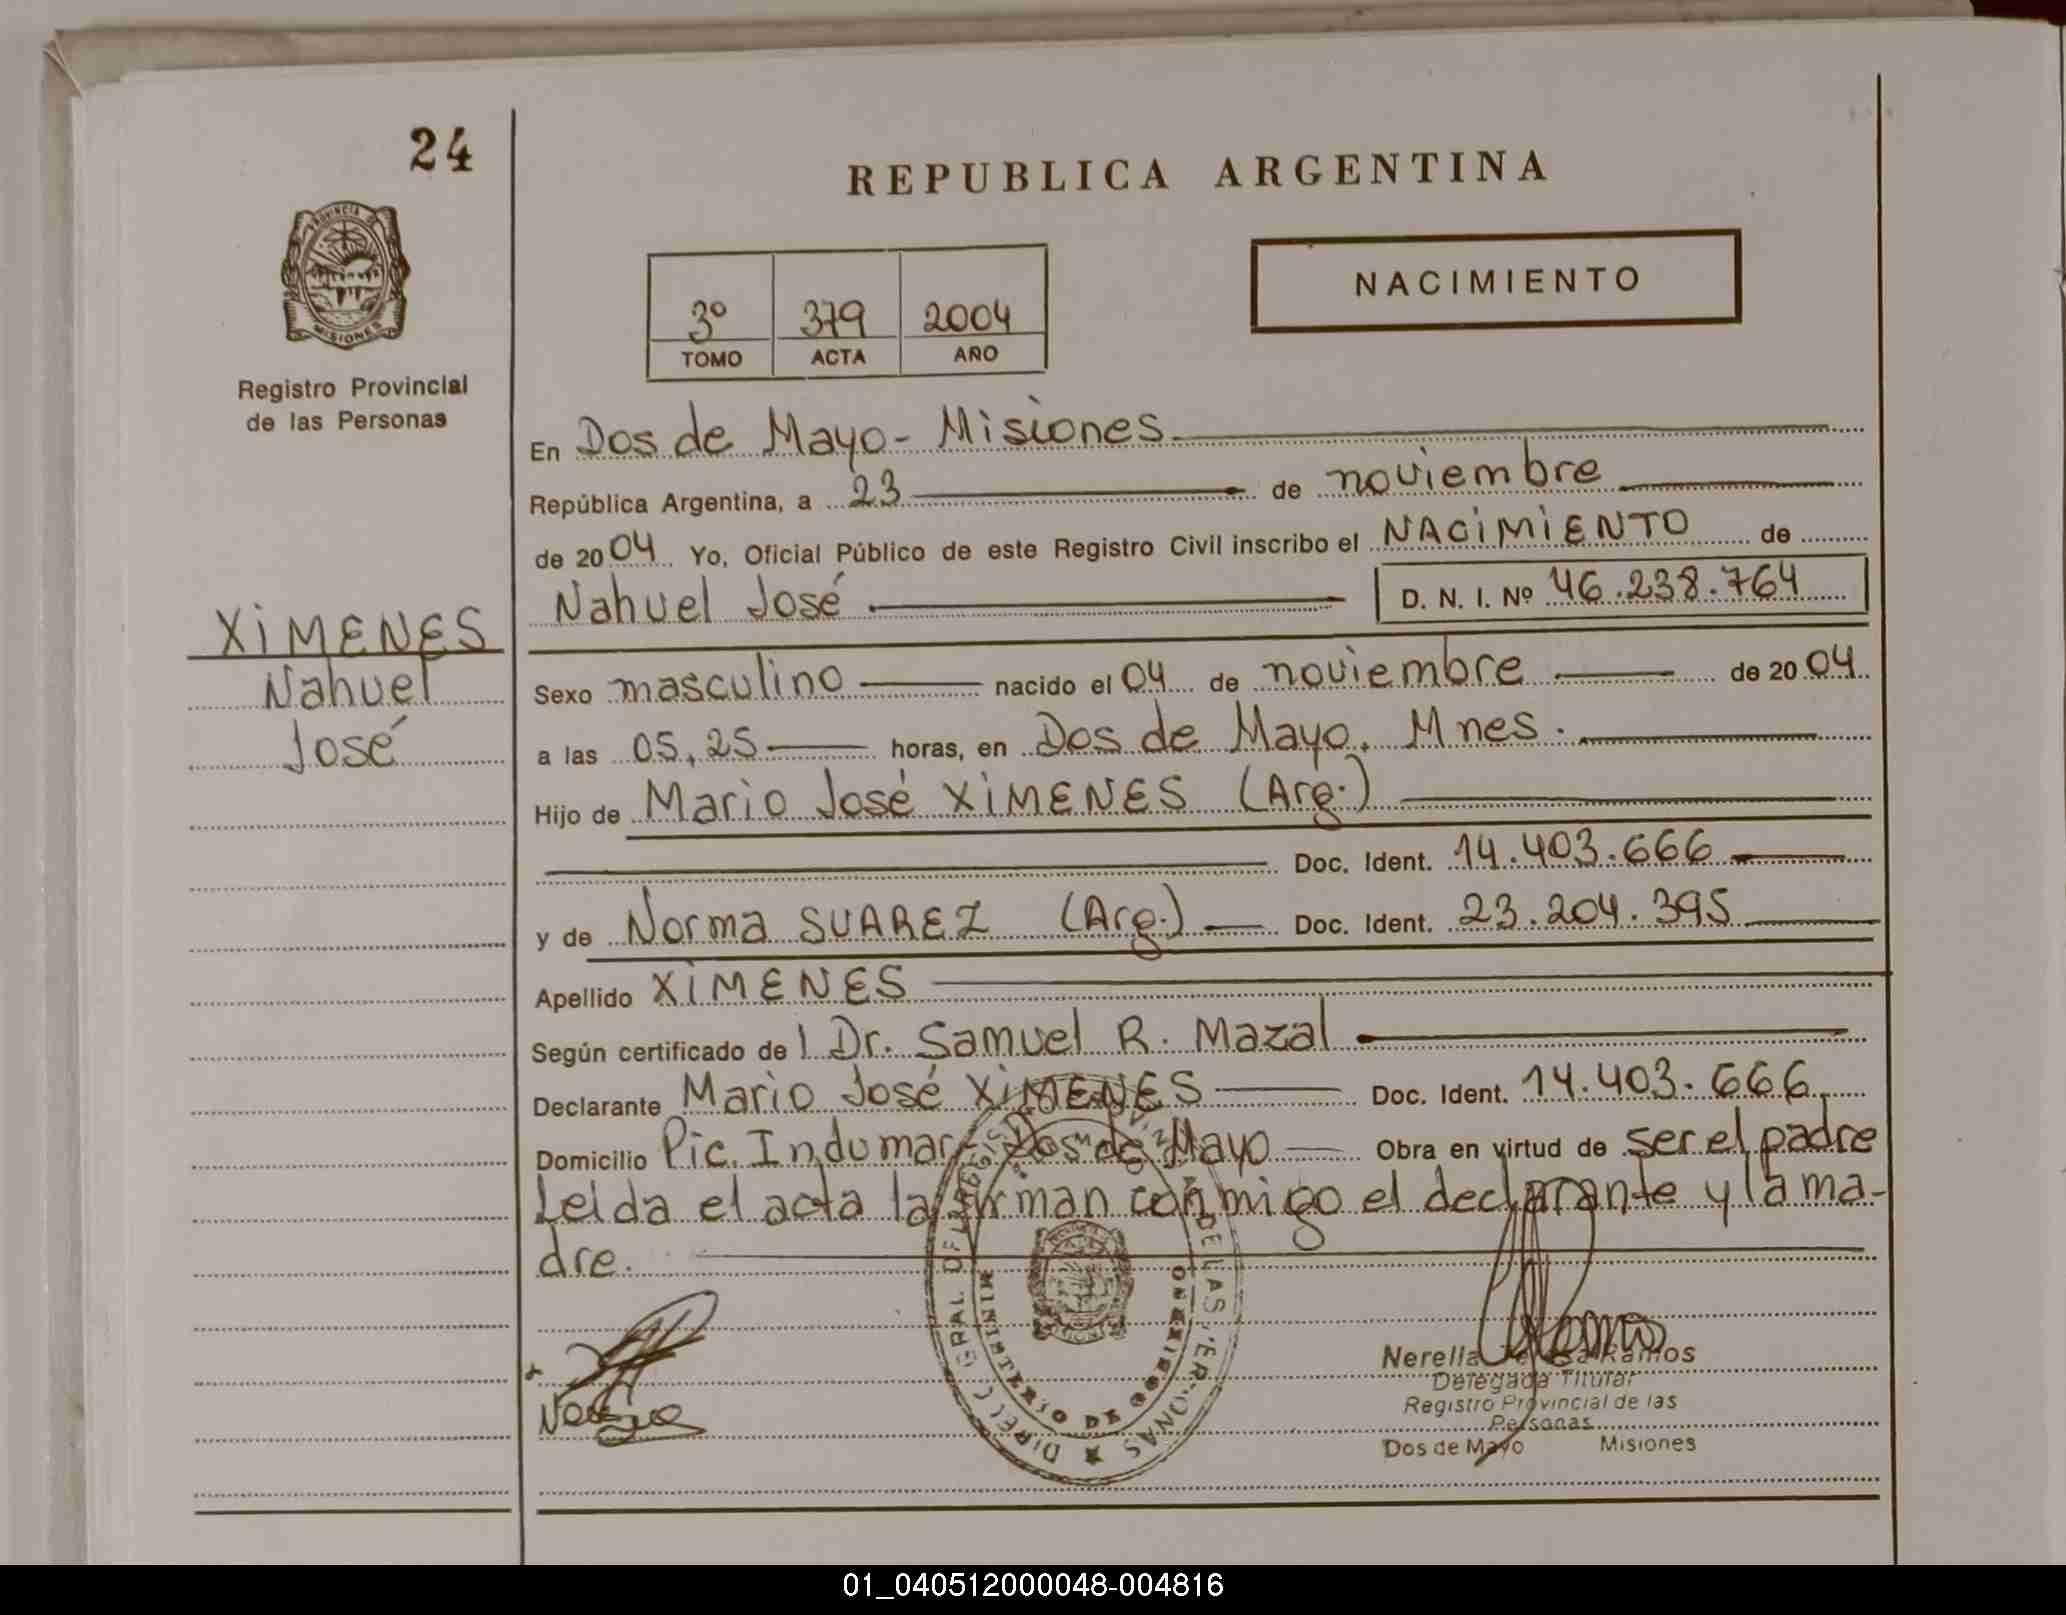 24
REPUBLICA ARGENTINA
PROVINCIA DE
MISIONES
Registro Provincial
de las Personas
NACIMIENTO
3º 379 2004
TOMO ACTA AÑO
En Dos de Mayo - Misiones
República Argentina, a 23 de noviembre
de 2004 Yo, Oficial Público de este Registro Civil inscribo el NACIMIENTO de
Nahuel José D. N. I. Nº 46.238.764
XIMENES
Nahuel
José
Sexo masculino nacido el 04 de noviembre de 2004
a las 05,25 horas, en Dos de Mayo. Mnes.
Hijo de Mario José XIMENES (Arg.)
Doc. Ident. 14.403.666
y de Norma SUAREZ (Arg.) Doc. Ident. 23.204.395
Apellido XIMENES
Según certificado del Dr. Samuel R. Mazal
Declarante Mario José XIMENES Doc. Ident. 14.403.666
Domicilio Pic. Indumar Dos de Mayo Obra en virtud de ser el padre
Leida el acta la firman conmigo el declarante y la ma-
dre.
MINISTERIO DE GOBIERNO
Nerella Ramos
Delegada Titular
Registro Provincial de las
Personas
Dos de Mayo Misiones
01_040512000048-004816